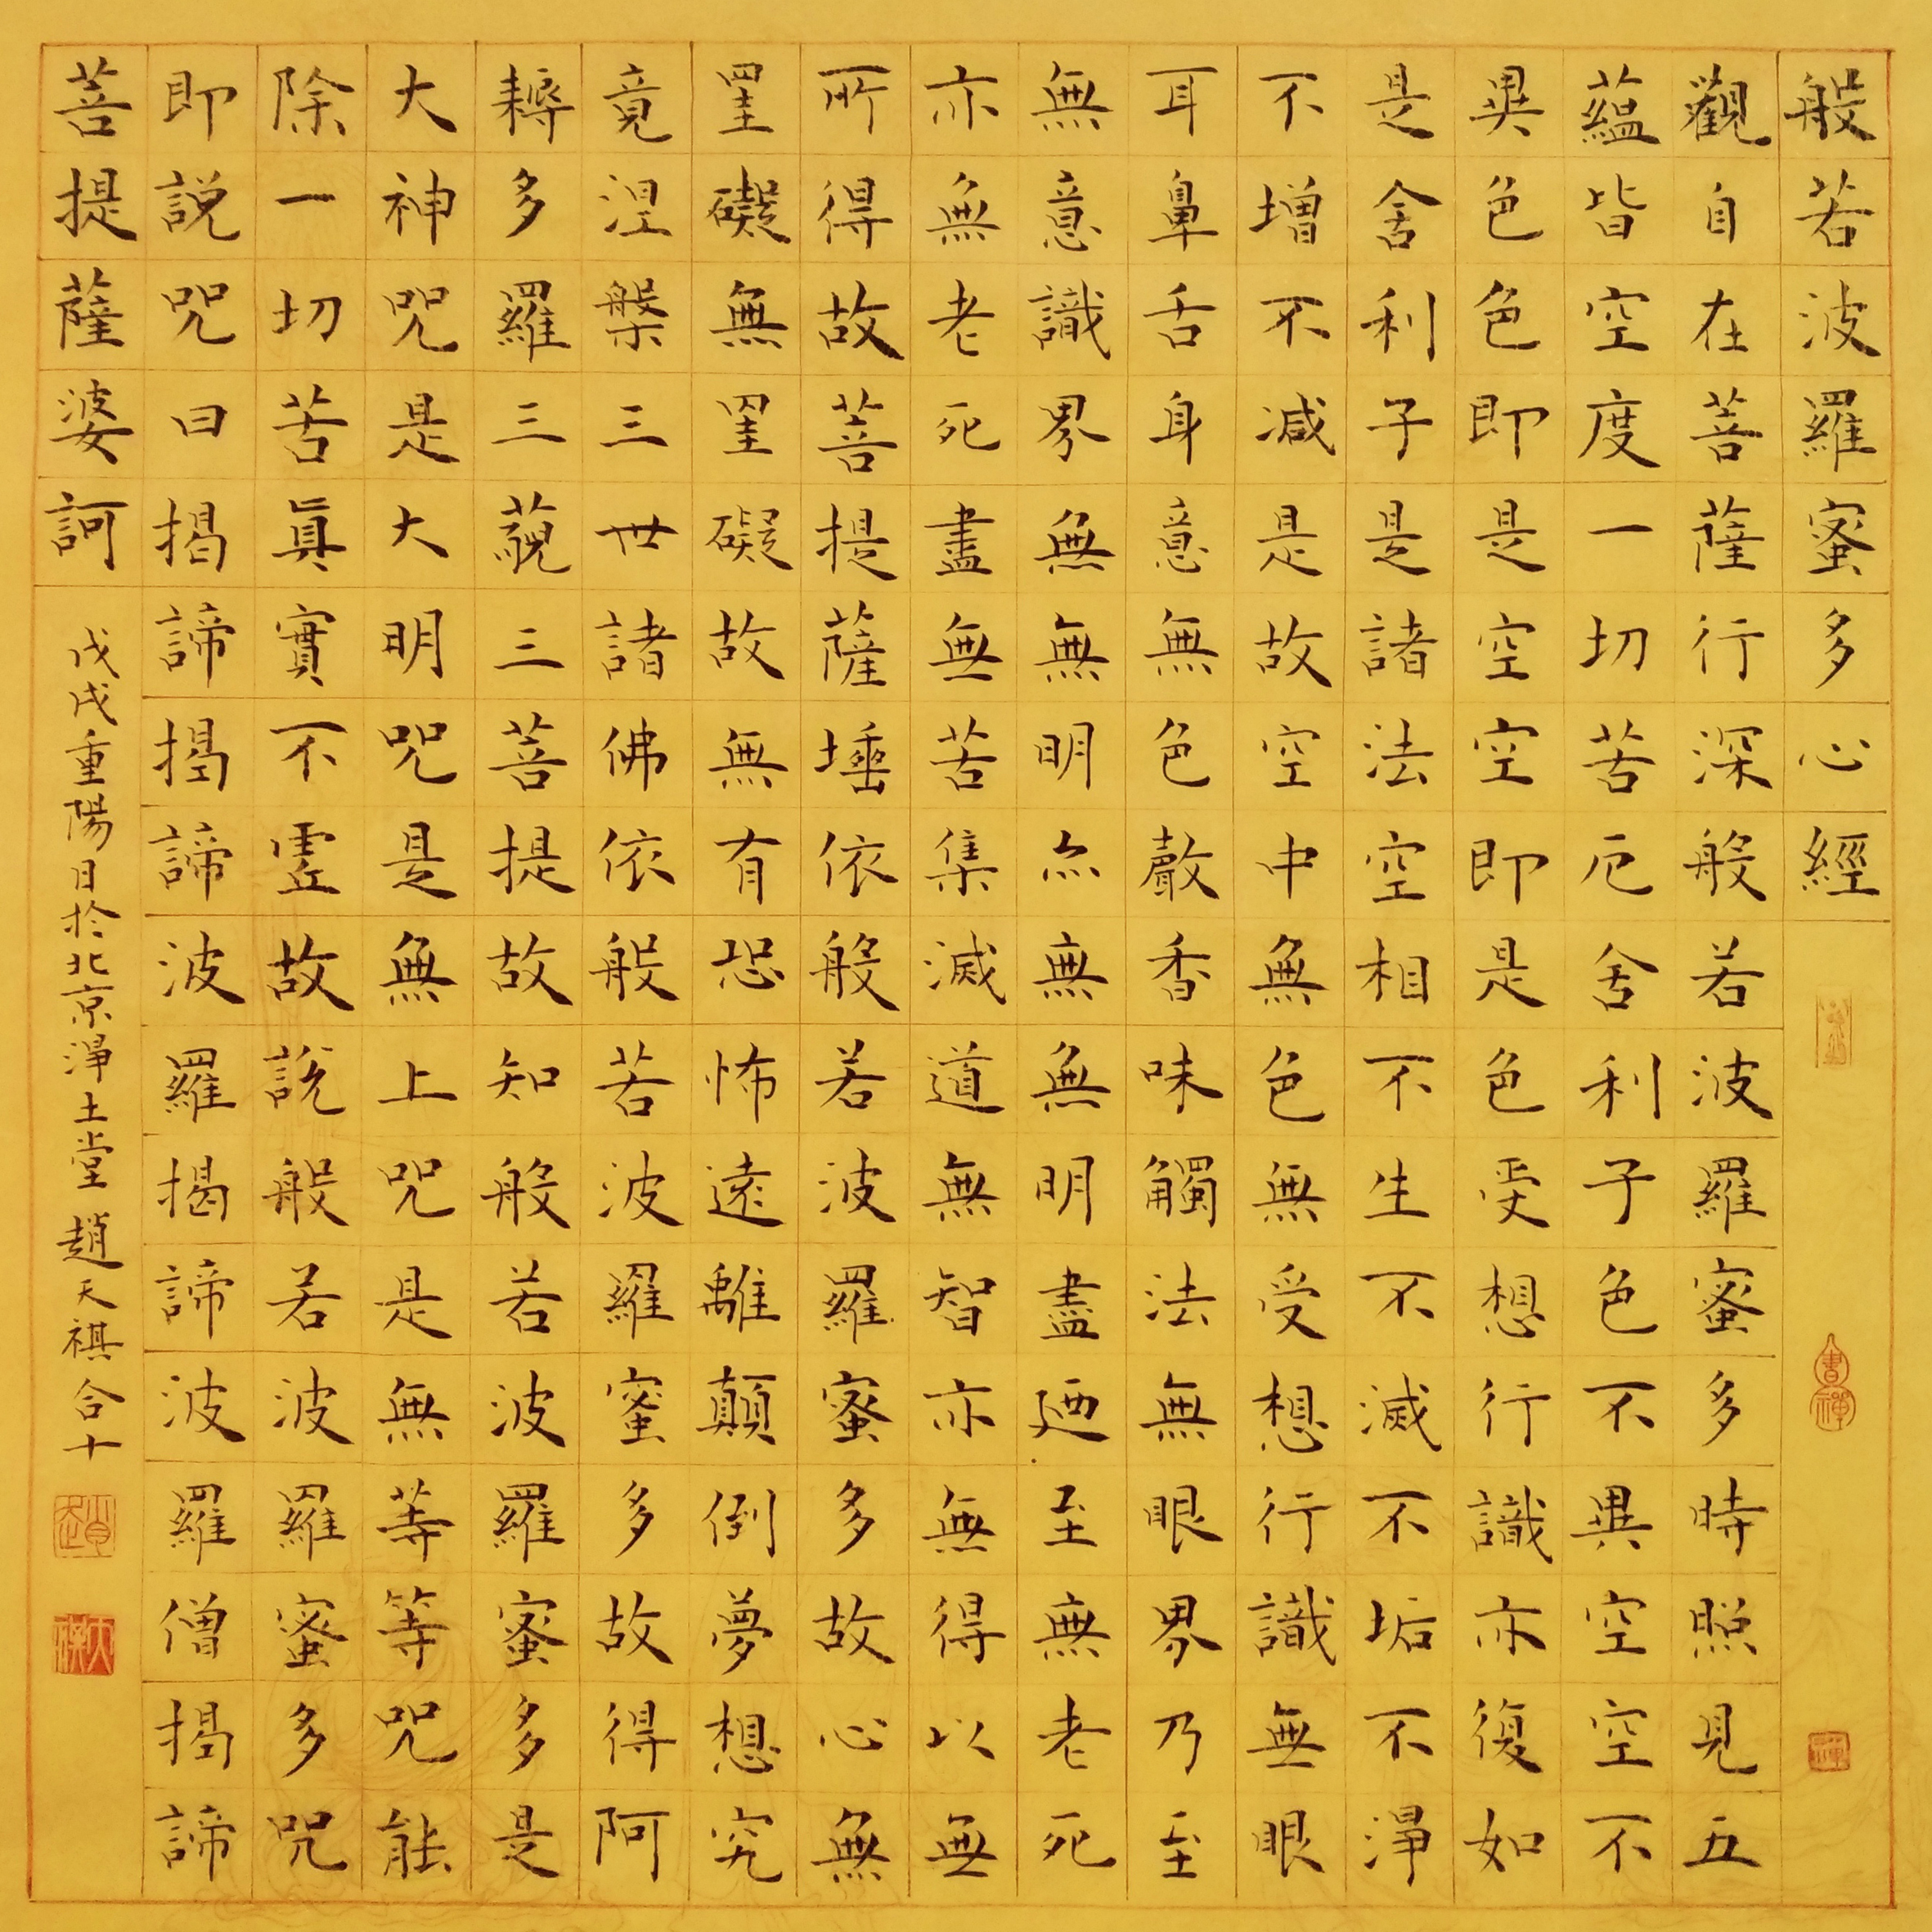 般若波羅蜜多心經
觀自在菩薩行深般若波羅蜜多時照見五
蘊皆空度一切苦厄舍利子色不異空空不
異色色即是空空即是色受想行識亦復如
是舍利子是諸法空相不生不滅不垢不淨
不增不減是故空中無色無受想行識無眼
耳鼻舌身意無色聲香味觸法無眼界乃至
無意識界無無明亦無無明盡廼至無老死
亦無老死盡無苦集滅道無智亦無得以無
所得故菩提薩埵依般若波羅蜜多故心無
罣礙無罣礙故無有恐怖遠離顛倒夢想究
竟涅槃三世諸佛依般若波羅蜜多故得阿
耨多羅三藐三菩提故知般若波羅蜜多是
大神咒是大明咒是無上咒是無等等咒能
除一切苦真實不虛故說般若波羅蜜多咒
即說咒曰揭諦揭諦波羅揭諦波羅僧揭諦
菩提薩婆訶
戊戌重陽日於北京淨土堂趙天祺合十
書禪
趙
天祺